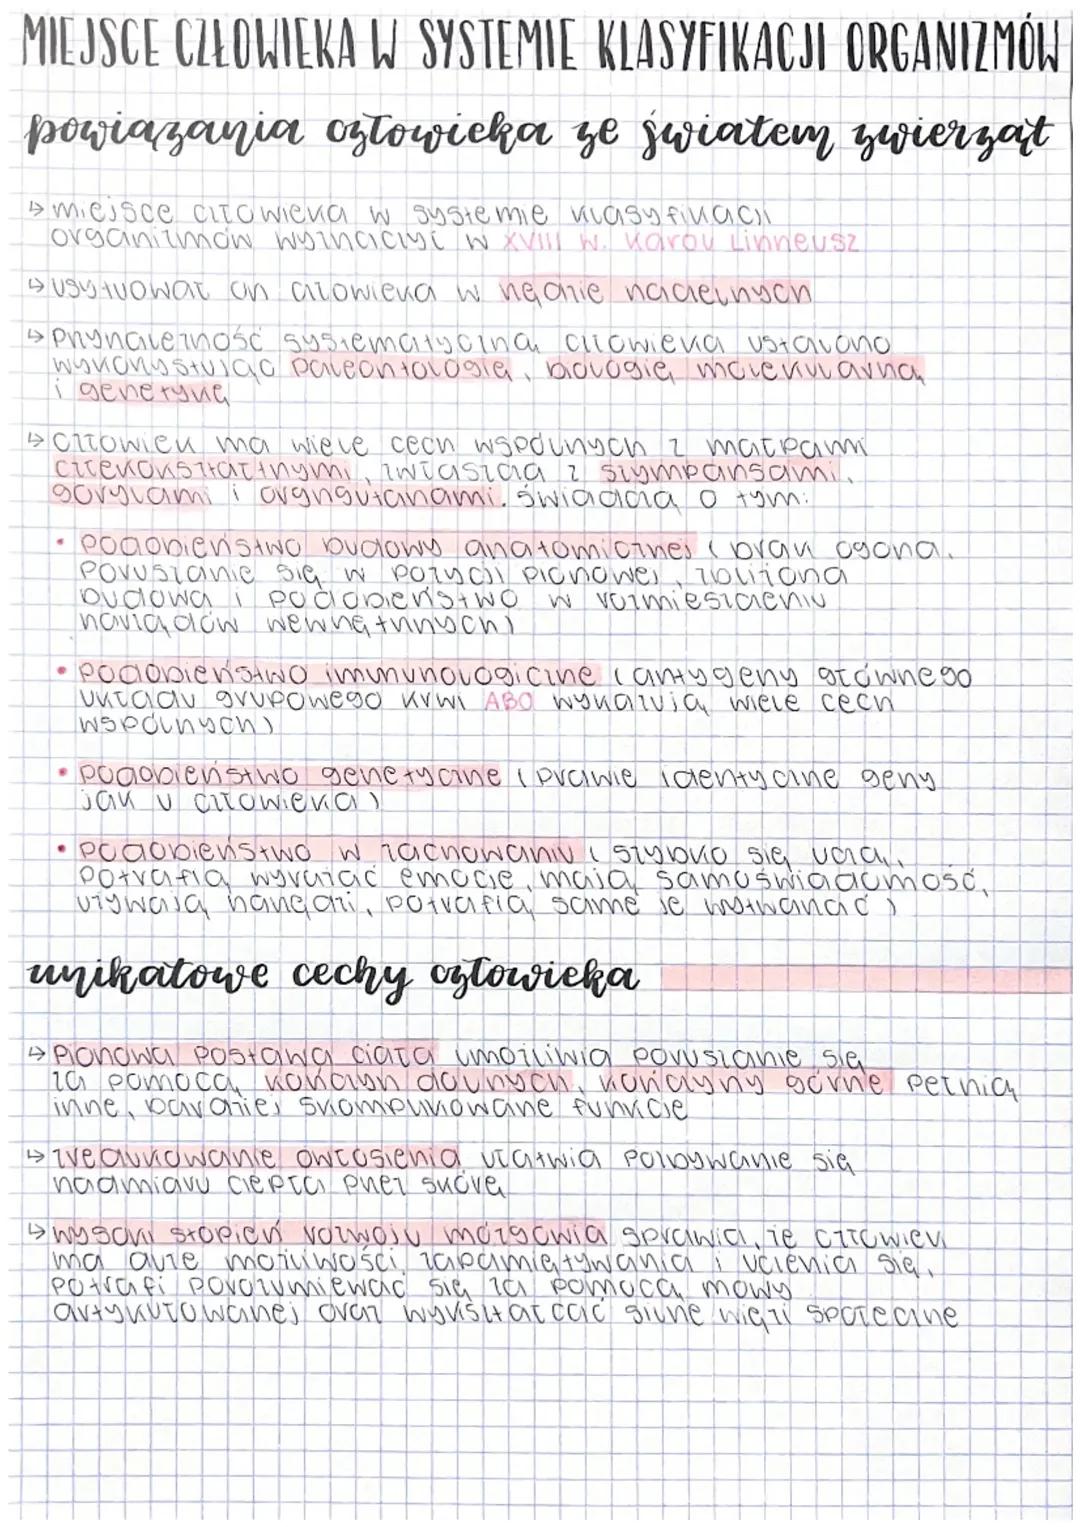 MIEJSCE CZŁOWIEKA W SYSTEMIE KLASYFIKACJI ORGANIZMÓW
powiązania człowieka ze światem zwierząt
↳ miejsce człowieka w systemie klasyfikacji
organizmów wyznaczył w XVIII w. Karol Linneusz
↳ usytuował on człowieka w rzędzie naczelnych
↳ przynależność systematyczną człowieka ustalono
wykorzystując paleontologię, biologię molekularną
i genetykę
↳ człowiek ma wiele cech wspólnych z małpami
człekokształtnymi, zwłaszcza z szympansami,
gorylami i orangutanami. świadczą o tym:
• podobieństwo budowy anatomicznej (brak ogona,
poruszanie się w pozycji pionowej, zbliżona
budowa i podobieństwo w rozmieszczeniu
narządów wewnętrznych)
• podobieństwo immunologiczne (antygeny głównego
układu grupowego krwi ABO wykazują wiele cech
wspólnych)
• podobieństwo genetyczne (prawie identyczne geny
jak u człowieka)
• podobieństwo w zachowaniu (szybko się uczą,
potrafią wyrażać emocje, mają samoświadomość,
używają narzędzi, potrafią same je wytwarzać)
unikatowe cechy człowieka
↳ pionowa postawa ciała umożliwia poruszanie się
za pomocą kończyn dolnych, kończyny górne pełnią
inne, bardziej skomplikowane funkcje
↳ zredukowanie owłosienia ułatwia pozbywanie się
nadmiaru ciepła przez skórę
↳ wysoki stopień rozwoju mózgowia sprawia, że człowiek
ma duże możliwości zapamiętywania i uczenia się,
potrafi porozumiewać się za pomocą mowy
artykułowanej oraz wykształcać silne więzi społeczne